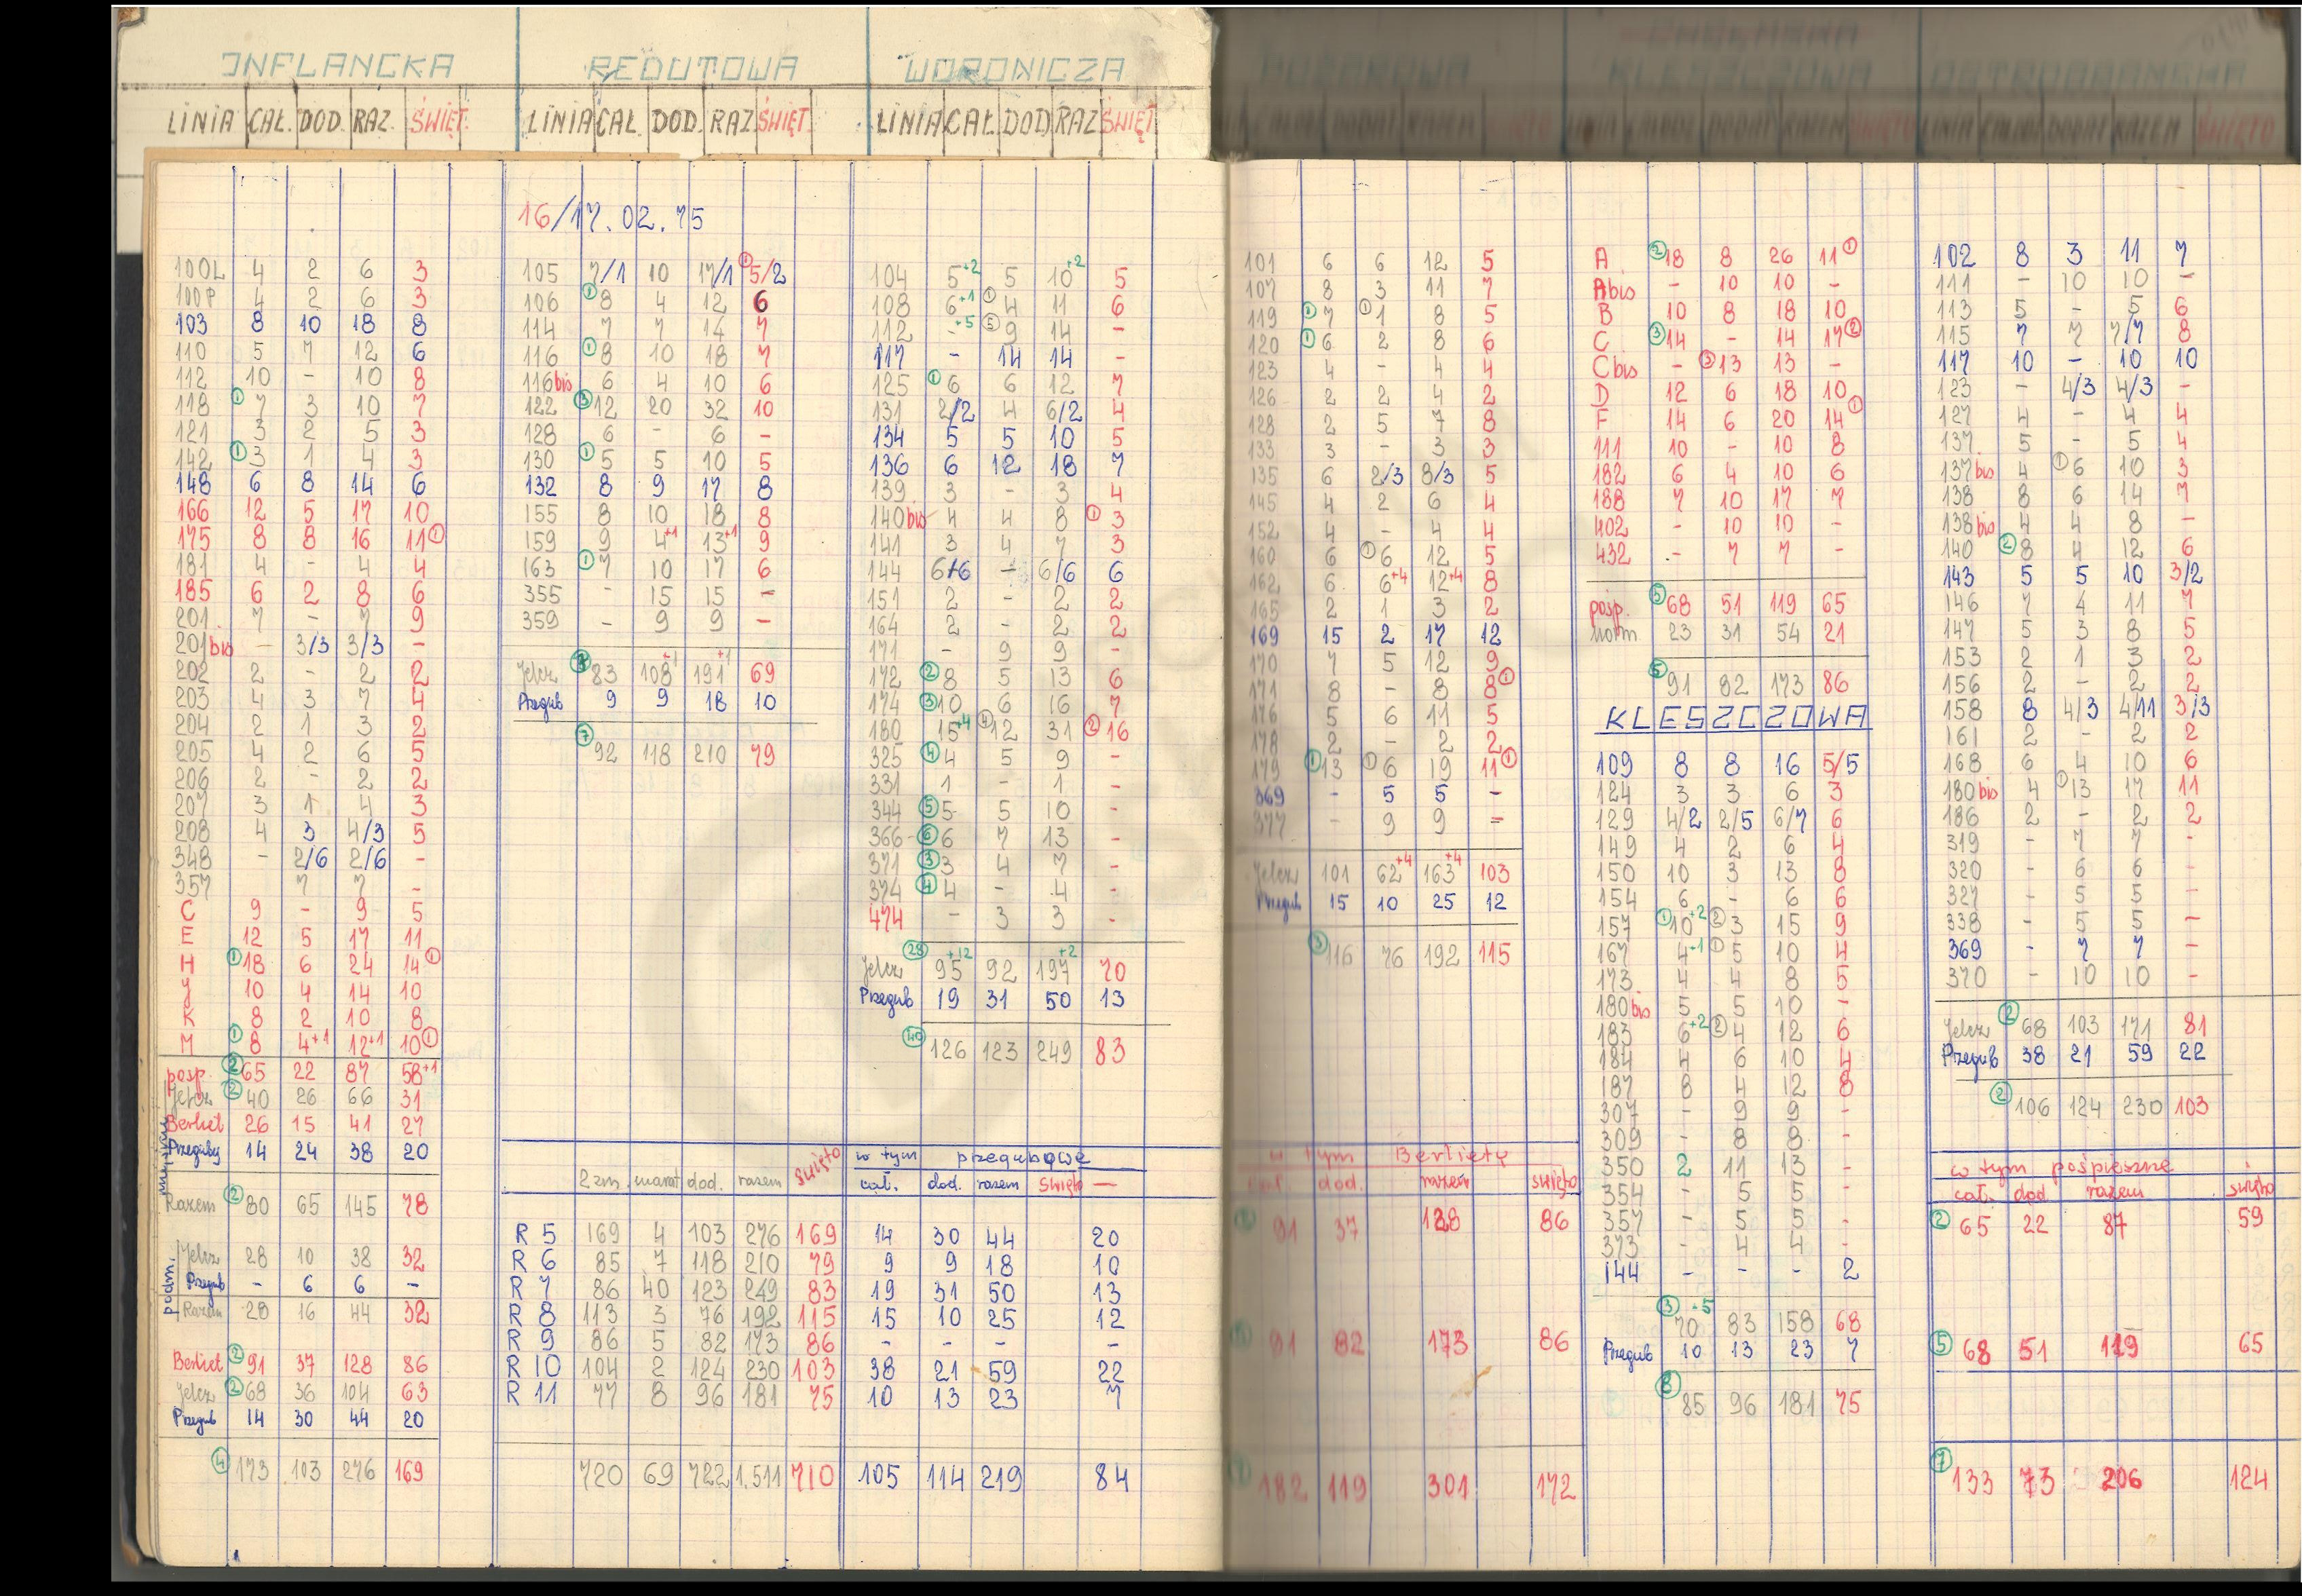 INFLANCKA
LINIA CAŁ. DOD. RAZ. ŚWIĘT.
100L 4 2 6 3
100P 4 2 6 3
103 8 10 18 8
110 5 7 12 6
112 10 - 10 8
118 ① 7 3 10 7
121 3 2 5 3
142 ① 3 1 4 3
148 6 8 14 6
166 12 5 17 10
175 8 8 16 11 ①
181 4 - 4 4
185 6 2 8 6
201 7 - 7 9
201 bis - 3/3 3/3 -
202 2 - 2 2
203 4 3 7 4
204 2 1 3 2
205 4 2 6 5
206 2 - 2 2
207 3 1 4 3
208 4 3 4/3 5
348 - 2/6 2/6 -
357 7 7 -
C 9 - 9 5
E 12 5 17 11
H ① 18 6 24 14 ①
J 10 4 14 10
K 8 2 10 8
M ① 8 4+1 12+1 10 ①
posp. ② 65 22 87 58+1
Jelcz ② 40 26 66 31
Berliet 26 15 41 27
Przeguby 14 24 38 20
Razem ② 80 65 145 78
podm.
Jelcz 28 10 38 32
Przegub - 6 6 -
Razem 28 16 44 32
Berliet ② 91 37 128 86
Jelcz ② 68 36 104 63
Przegub 14 30 44 20
④ 173 103 276 169
REDUTOWA
LINIA CAŁ. DOD. RAZ ŚWIĘT
16/17.02.75
105 7/1 10 17/1 ① 5/2
106 ① 8 4 12 6
114 7 7 14 7
116 ① 8 10 18 7
116 bis 6 4 10 6
122 ③ 12 20 32 10
128 6 - 6 -
130 ① 5 5 10 5
132 8 9 17 8
155 8 10 18 8
159 9 4+1 13+1 9
163 ① 7 10 17 6
355 - 15 15 -
359 - 9 9 -
Jelcz 83 108+1 191+1 69
Przegub 9 9 18 10
⑦ 92 118 210 79
WORONICZA
LINIA CAŁ DOD RAZ ŚWIĘT
104 5+2 5 10+2 5
108 6+1 ① 4 11 6
112 -+5 ⑤ 9 14 -
117 - 14 14 -
125 ① 6 6 12 7
131 2/2 4 6/2 4
134 5 5 10 5
136 6 12 18 7
139 3 - 3 4
140 bis 4 4 8 ① 3
141 3 4 7 3
144 6+6 - 6/6 6
151 2 - 2 2
164 2 - 2 2
171 - 9 9 -
172 ② 8 5 13 6
174 ③ 10 6 16 7
180 15+4 ④ 12 31 ② 16
325 ④ 4 5 9 -
331 1 - 1 -
344 ⑤ 5 5 10 -
366 ⑥ 6 7 13 -
371 ③ 3 4 7 -
374 ④ 4 - 4 -
474 - 3 3 -
Jelcz ㉘ 95+12 92 197+2 70
Przegub 19 31 50 13
㊵ 126 123 249 83
2 zm. marat dod. razem święto w tym przegubowe
cał. dod. razem święto —
R 5 169 4 103 276 169 14 30 44 20
R 6 85 7 118 210 79 9 9 18 10
R 7 86 40 123 249 83 19 31 50 13
R 8 113 3 76 192 115 15 10 25 12
R 9 86 5 82 173 86 - - - -
R 10 104 2 124 230 103 38 21 59 22
R 11 77 8 96 181 75 10 13 23 7
720 69 722 1.511 710 105 114 219 84
101 6 6 12 5
107 8 3 11 7
119 ① 7 ① 1 8 5
120 ① 6 2 8 6
123 4 - 4 4
126 2 2 4 2
128 2 5 7 8
133 3 - 3 3
135 6 2/3 8/3 5
145 4 2 6 4
152 4 - 4 4
160 6 ① 6 12 5
162 6 6+4 12+4 8
165 2 1 3 2
169 15 2 17 12
170 7 5 12 9
171 8 - 8 8 ①
176 5 6 11 5
178 2 - 2 2
179 ① 13 ① 6 19 11 ①
369 - 5 5 -
377 - 9 9 -
Jelcz 101 62+4 163+4 103
Przegub 15 10 25 12
③ 116 76 192 115
w tym Berliety
cał. dod. razem święto
91 37 128 86
91 82 173 86
182 119 301 172
A ② 18 8 26 11 ①
A bis - 10 10 -
B 10 8 18 10
C ③ 14 - 14 17 ②
C bis - ③ 13 13 -
D 12 6 18 10
F 14 6 20 14 ①
111 10 - 10 8
182 6 4 10 6
188 7 10 17 7
402 - 10 10 -
432 - 7 7 -
posp. ⑤ 68 51 119 65
norm 23 31 54 21
⑤ 91 82 173 86
KLESZCZOWA
109 8 8 16 5/5
124 3 3 6 3
129 4/2 2/5 6/7 6
149 4 2 6 4
150 10 3 13 8
154 6 - 6 6
157 ① 10+2 ② 3 15 9
167 4+1 ① 5 10 4
173 4 4 8 5
180 bis 5 5 10 -
183 6+2 ② 4 12 6
184 4 6 10 4
187 8 4 12 8
307 - 9 9 -
309 - 8 8 -
350 2 11 13 -
354 - 5 5 -
357 - 5 5 -
373 - 4 4 -
144 - - - 2
③ 70+5 83 158 68
Przegub 10 13 23 7
⑧ 85 96 181 75
102 8 3 11 7
111 - 10 10 -
113 5 - 5 6
115 7 7 7/7 8
117 10 - 10 10
123 - 4/3 4/3 -
127 4 - 4 4
137 5 - 5 4
137 bis 4 ① 6 10 3
138 8 6 14 7
138 bis 4 4 8 -
140 ② 8 4 12 6
143 5 5 10 3/2
146 7 4 11 7
147 5 3 8 5
153 2 1 3 2
156 2 - 2 2
158 8 4/3 4/11 3/3
161 2 - 2 2
168 6 4 10 6
180 bis 4 ① 13 17 11
186 2 - 2 2
319 - 7 7 -
320 - 6 6 -
327 - 5 5 -
338 - 5 5 -
369 - 7 7 -
370 - 10 10 -
Jelcz ② 68 103 171 81
Przegub 38 21 59 22
② 106 124 230 103
w tym pośpieszne
cał. dod. razem święto
② 65 22 87 59
⑤ 68 51 119 65
⑦ 133 73 206 124